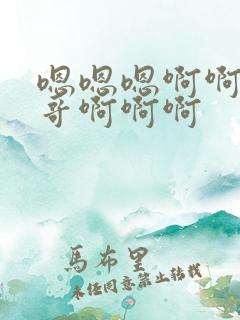 嗯嗯嗯啊啊
哥啊啊啊
馬布里
未经同意禁止转载